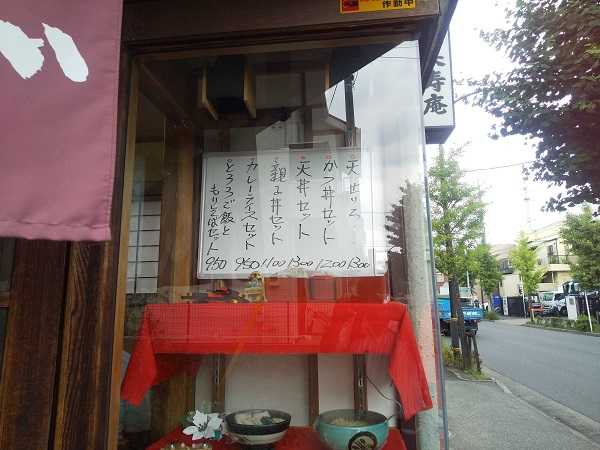 作動中
寿庵
天丼リつ
・かつ丼セット
・天丼セット
・親子丼セット
カレーライスセット
とろろご飯と
もりそばセット
950 950 1100 1300 1200 1300